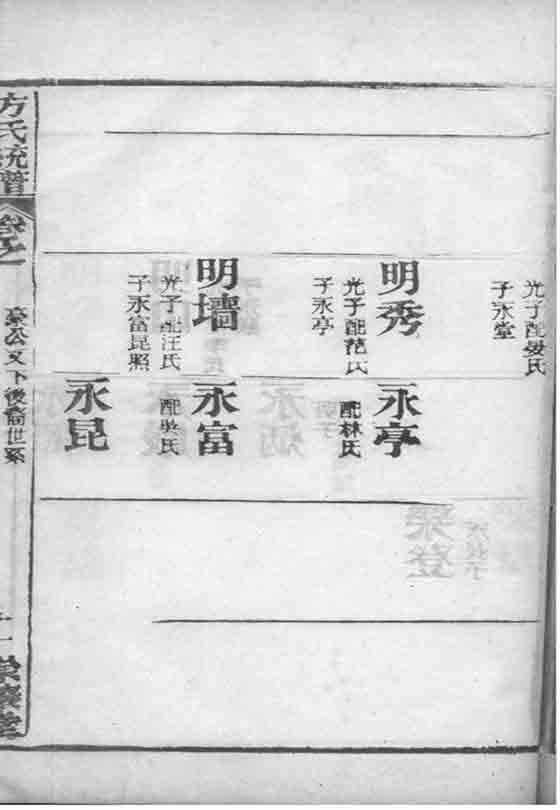 光子配晏氏
子永堂
明秀
光子配范氏
子永亭
明墙
光子配汪氏
子永富昆照
永亭
配林氏
永富
配吳氏
永昆
方氏統譜
豪公叉下後裔世系